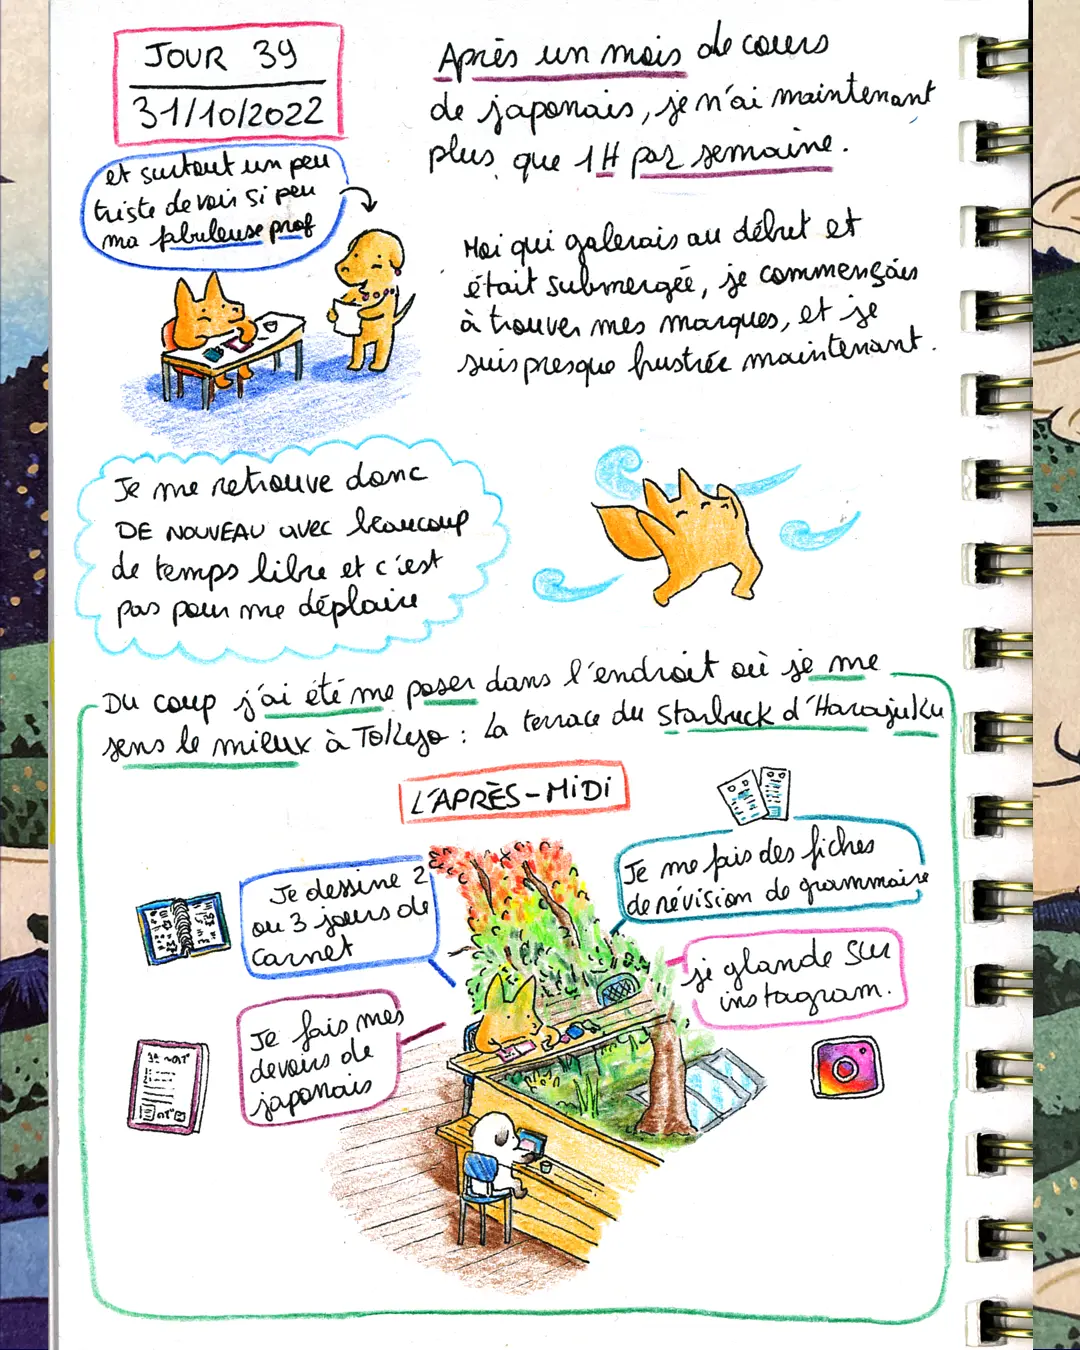 JOUR 39
31/10/2022
Après un mois de cours
de japonais, je n'ai maintenant
plus que 1H par semaine.
et surtout un peu
triste de voir si peu
ma fabuleuse prof
Moi qui galerais au début et
était submergée, je commençais
à trouver mes marques, et je
suis presque frustrée maintenant.
Je me retrouve donc
DE NOUVEAU avec beaucoup
de temps libre et c'est
pas pour me déplaire
Du coup j'ai été me poser dans l'endroit où je me
sens le mieux à Tokyo : La terrace du Starbuck d'Harajuku
L'APRÈS-MIDI
Je dessine 2
ou 3 jours de
carnet
Je me fais des fiches
de révision de grammaire
je glande sur
instagram.
Je fais mes
devoirs de
japonais